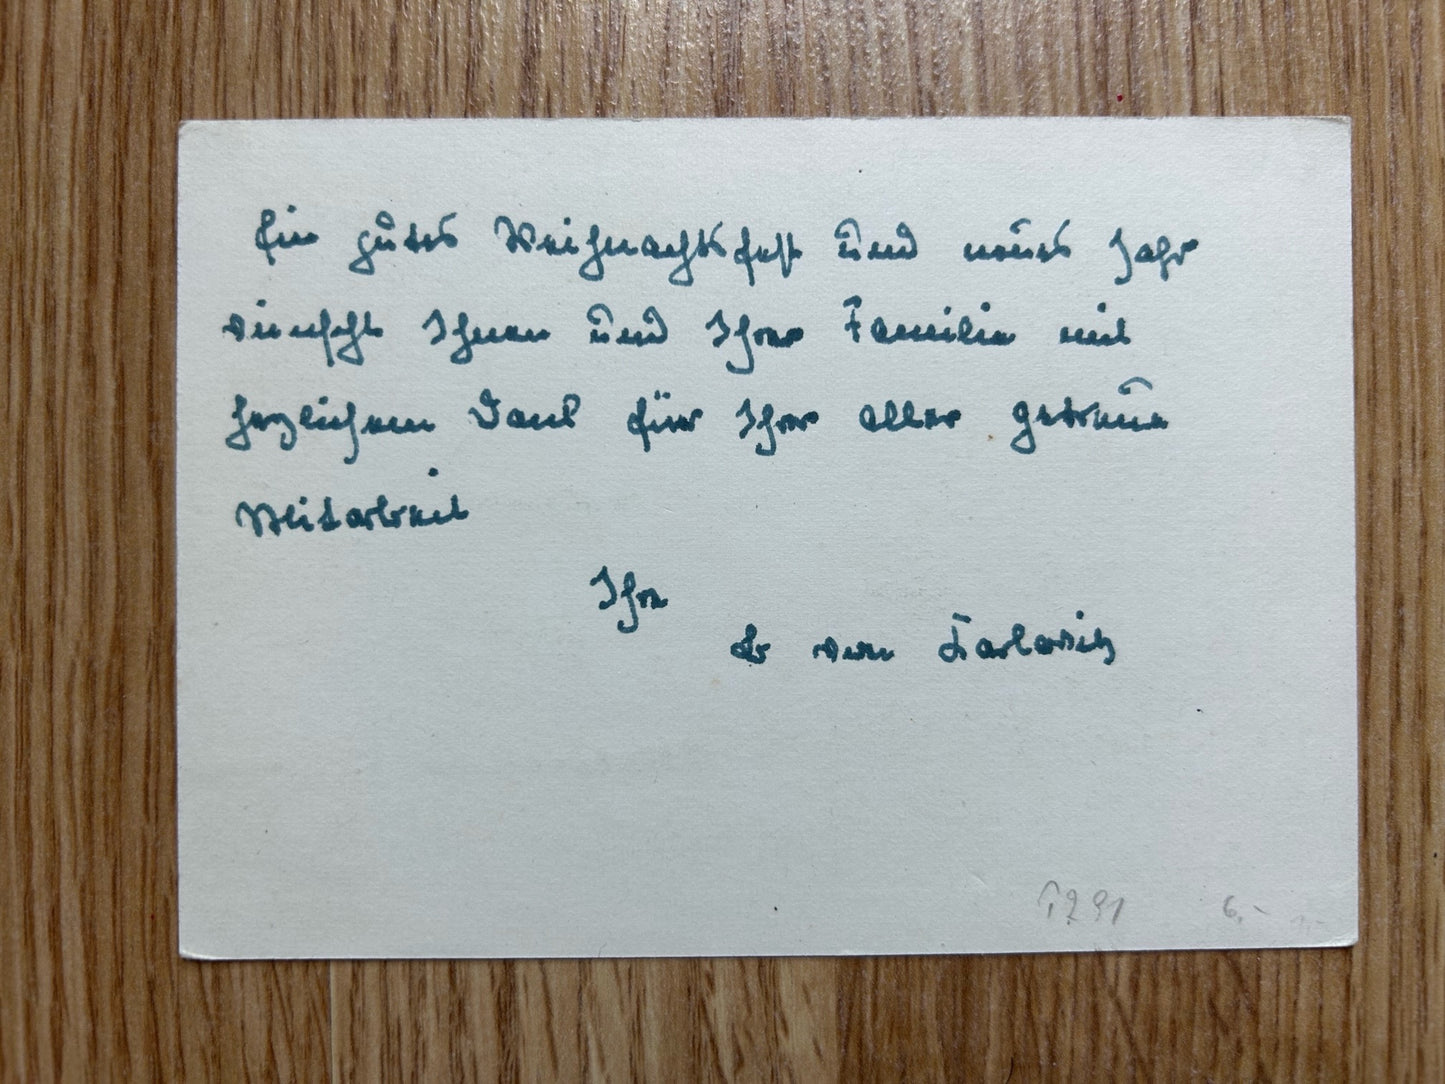 Ein gutes Weihnachtsfest und neues Jahr
wünscht Ihnen und Ihrer Familie mit
herzlichem Dank für Ihrer aller getreue
Mitarbeit
Ihr
6.-